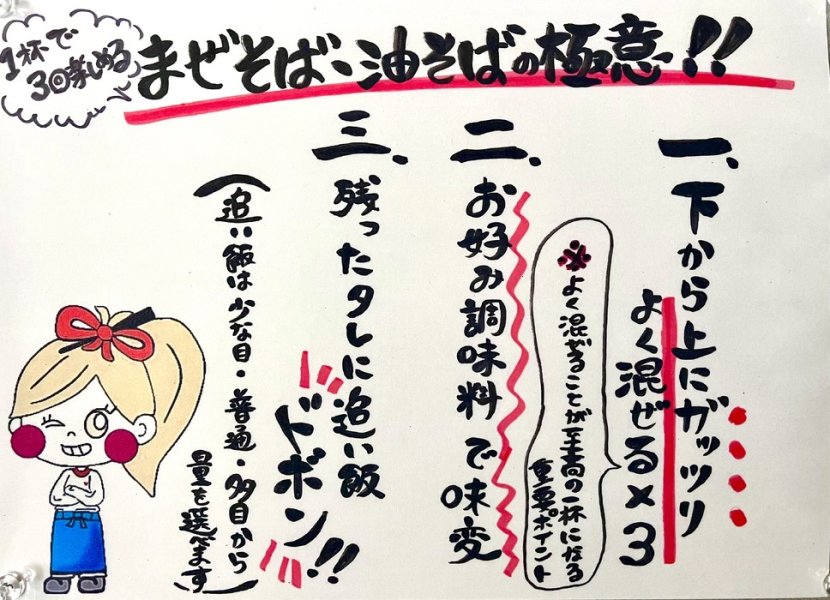 1杯で
3回楽しめる
まぜそば・油そばの極意!!
一、下から上にガッツリ
よく混ぜる×3
※よく混ぜることが至高の一杯になる
重要ポイント
二、お好み調味料で味変
三、残ったタレに追い飯
ドボン!!
(追い飯は少な目・普通・多目から
量を選べます)